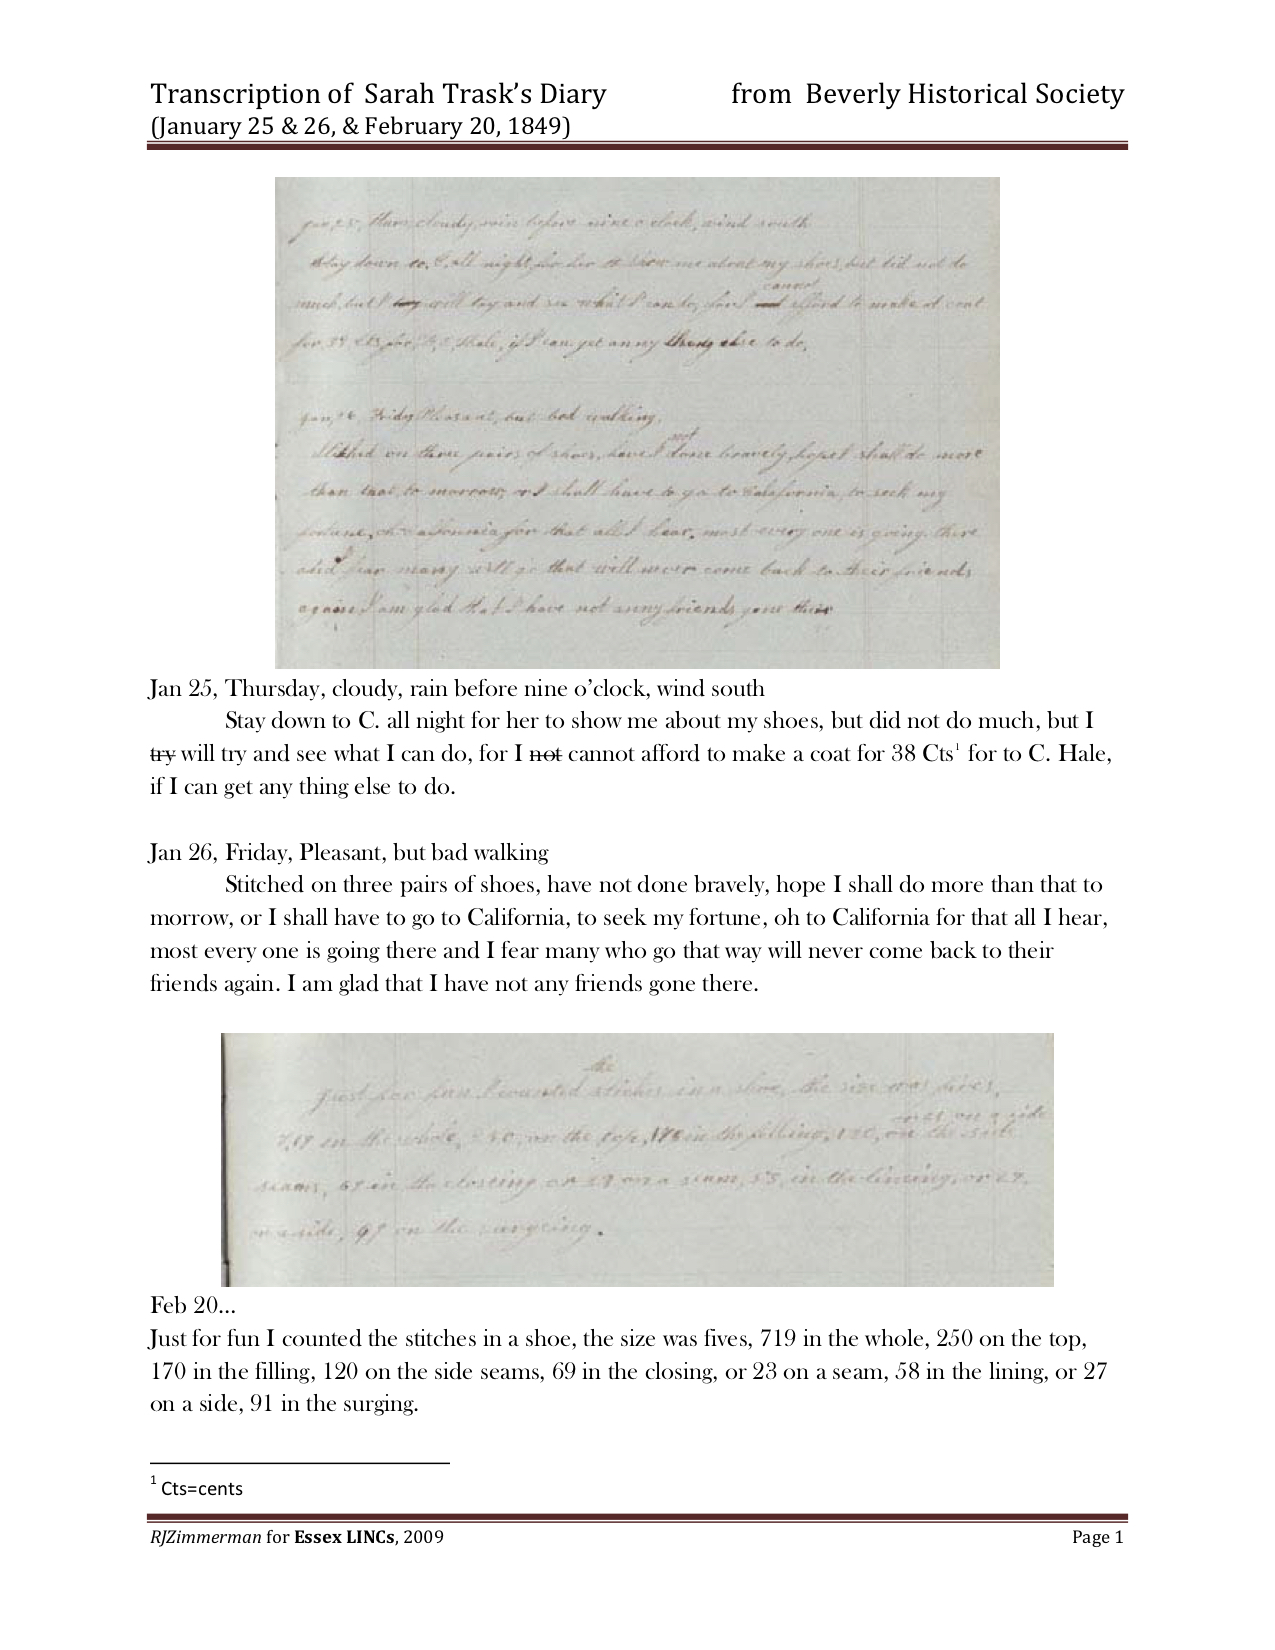 Transcription of Sarah Trask's Diary from Beverly Historical Society
(January 25 & 26, & February 20, 1849)
Jan, 25, Thurs, cloudy, rain before nine o clock, wind south
Stay down to, C, all night for her to show me about my shoes, but did not do
cannot
much, but I try will try and see what I can do, for I not afford to make at coat
for 38 Cts for, C, Hale, if I can get anny thing else to do,
Jan, 26, Fridy Pleasant, but bad walking,
not
Stitched on three pairs of shoes, have I done bravely, hope I shall do more
than that to morrow, or I shall have to go to California, to seek my
fortune, oh California for that all I hear, most every one is going there
and I fear many will go that will never come back to their friends
again I am glad that I have not anny friends gone their
Jan 25, Thursday, cloudy, rain before nine o'clock, wind south
Stay down to C. all night for her to show me about my shoes, but did not do much, but I
try will try and see what I can do, for I not cannot afford to make a coat for 38 Cts¹ for to C. Hale,
if I can get any thing else to do.
Jan 26, Friday, Pleasant, but bad walking
Stitched on three pairs of shoes, have not done bravely, hope I shall do more than that to
morrow, or I shall have to go to California, to seek my fortune, oh to California for that all I hear,
most every one is going there and I fear many who go that way will never come back to their
friends again. I am glad that I have not any friends gone there.
the
Just for fun I counted stiches in a shoe, the size was fives,
on a side
719 in the whole, 250, on the top, 173 in the filling, 120, on the side
seams, 69 in the closeing or 23 on a seam, 58, in the linning, or 29,
on a side, 99 on the surgeing.
Feb 20...
Just for fun I counted the stitches in a shoe, the size was fives, 719 in the whole, 250 on the top,
170 in the filling, 120 on the side seams, 69 in the closing, or 23 on a seam, 58 in the lining, or 27
on a side, 91 in the surging.
¹ Cts=cents
RJZimmerman for Essex LINCs, 2009 Page 1